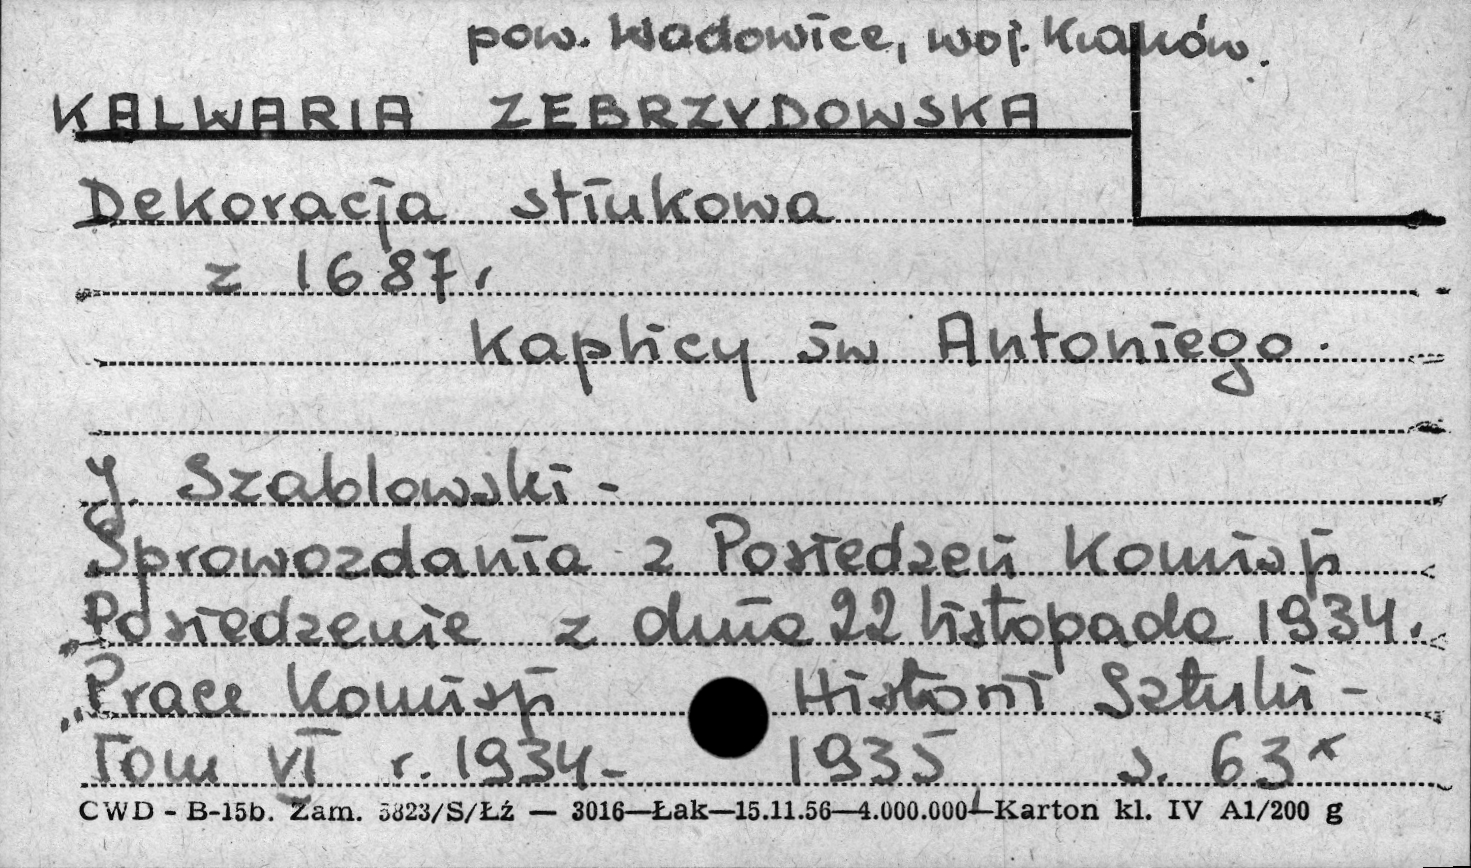 pow. Wadowice, woj. Kraków.
KALWARIA ZEBRZYDOWSKA
Dekoracja stiukowa
z 1687 r
Kaplicy św Antoniego.
J. Szablowski -
Sprawozdania z Posiedzeń Komisji
Posiedzenie z dnia 22 listopada 1934.
"Prace Komisji Historii Sztuki -
Tom VI r. 1934 - 1935 s. 63x
CWD - B-15b. Zam. 5823/S/Łź — 3016—Łak—15.11.56—4.000.000—Karton kl. IV A1/200 g